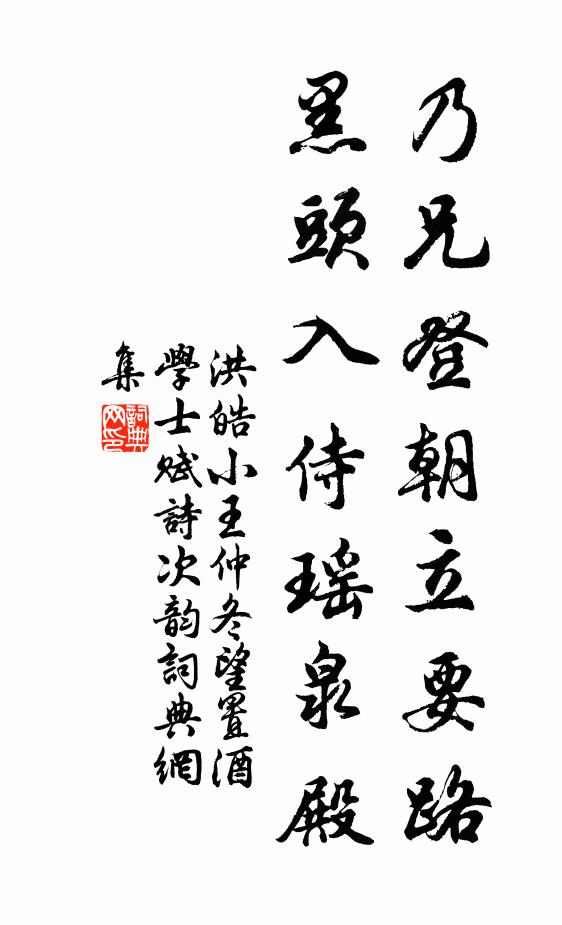 乃兄登朝立要路
黑頭入侍瑶泉殿
洪皓小王仲冬望置酒
學士赋詩次韵詞典網
集
詞典网印